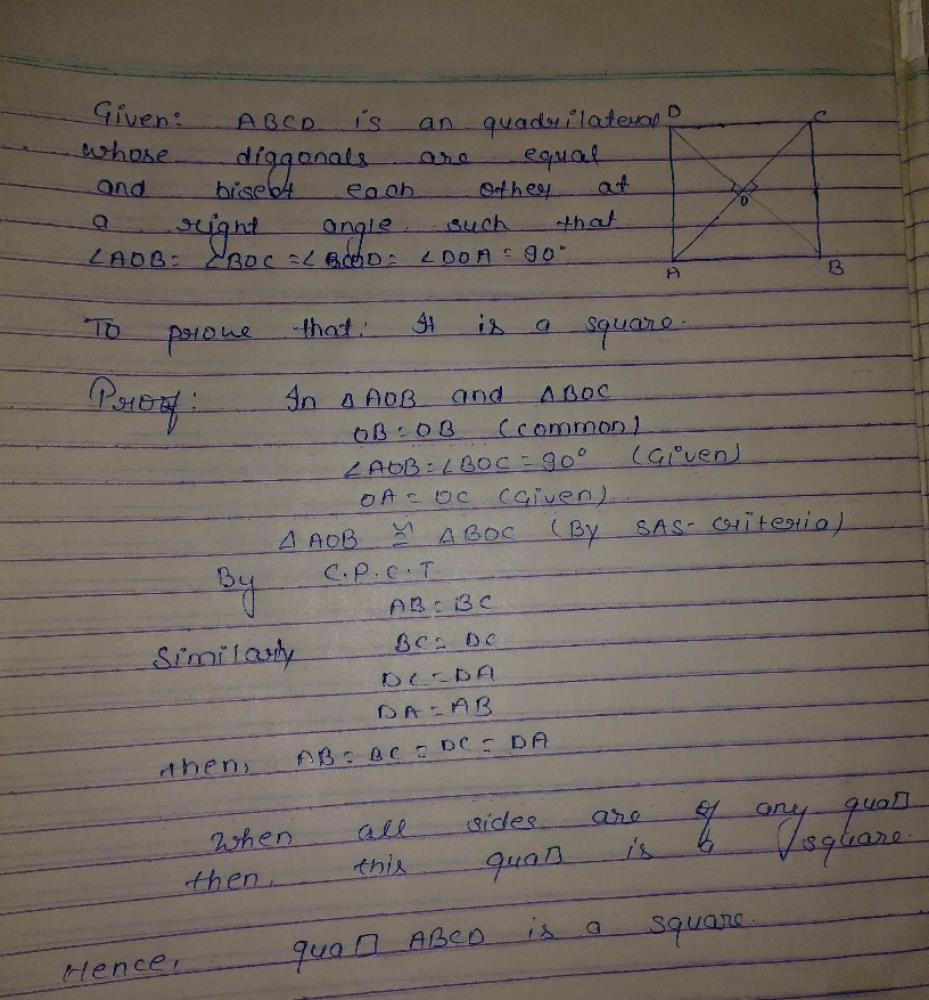 Given: ABCD is an quadrilateral
whose diggonals are equal
and bisebt each other at
a right angle such that
∠AOB = ∠BOC = ∠COD = ∠DOA = 90°
D C
O
A B
To prove that: It is a square.
Proof: In △AOB and △BOC
OB = OB (common)
∠AOB = ∠BOC = 90° (Given)
OA = OC (Given)
△AOB ≅ △BOC (By SAS- criteria)
By C.P.C.T
AB = BC
Similarly BC = DC
DC = DA
DA = AB
then, AB = BC = DC = DA
When all sides are of any qua□
then, this qua□ is square.
Hence, qua□ ABCD is a square.